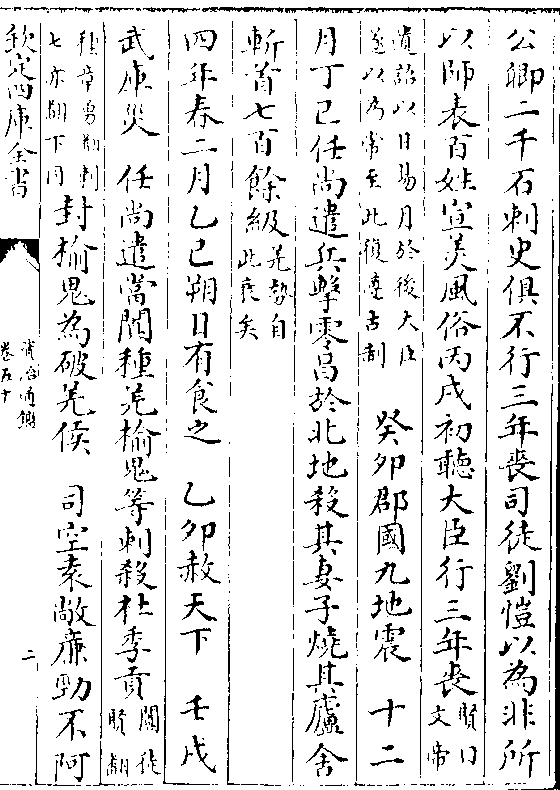 公卿二千石刺史俱不行三年喪司徒劉愷以為非所
以師表百姓宣美風俗丙戌初聽大臣行三年喪賢曰文帝
遺詔以日易月於後大臣遂以為常至此復遵古制 癸卯郡國九地震 十二
月丁巳任尚遣兵擊零昌於北地殺其妻子燒其廬舍
斬首七百餘級羌勢自此衰矣
四年春二月乙巳朔日有食之 乙卯赦天下 壬戌
武庫災 任尚遣當闐種羌榆鬼等刺殺杜季貢闐徒賢翻
種章勇翻刺七亦翻下同封榆鬼為破羌侯 司空袁敞廉勁不阿
欽定四庫全書
資治通鑑
卷五十
二